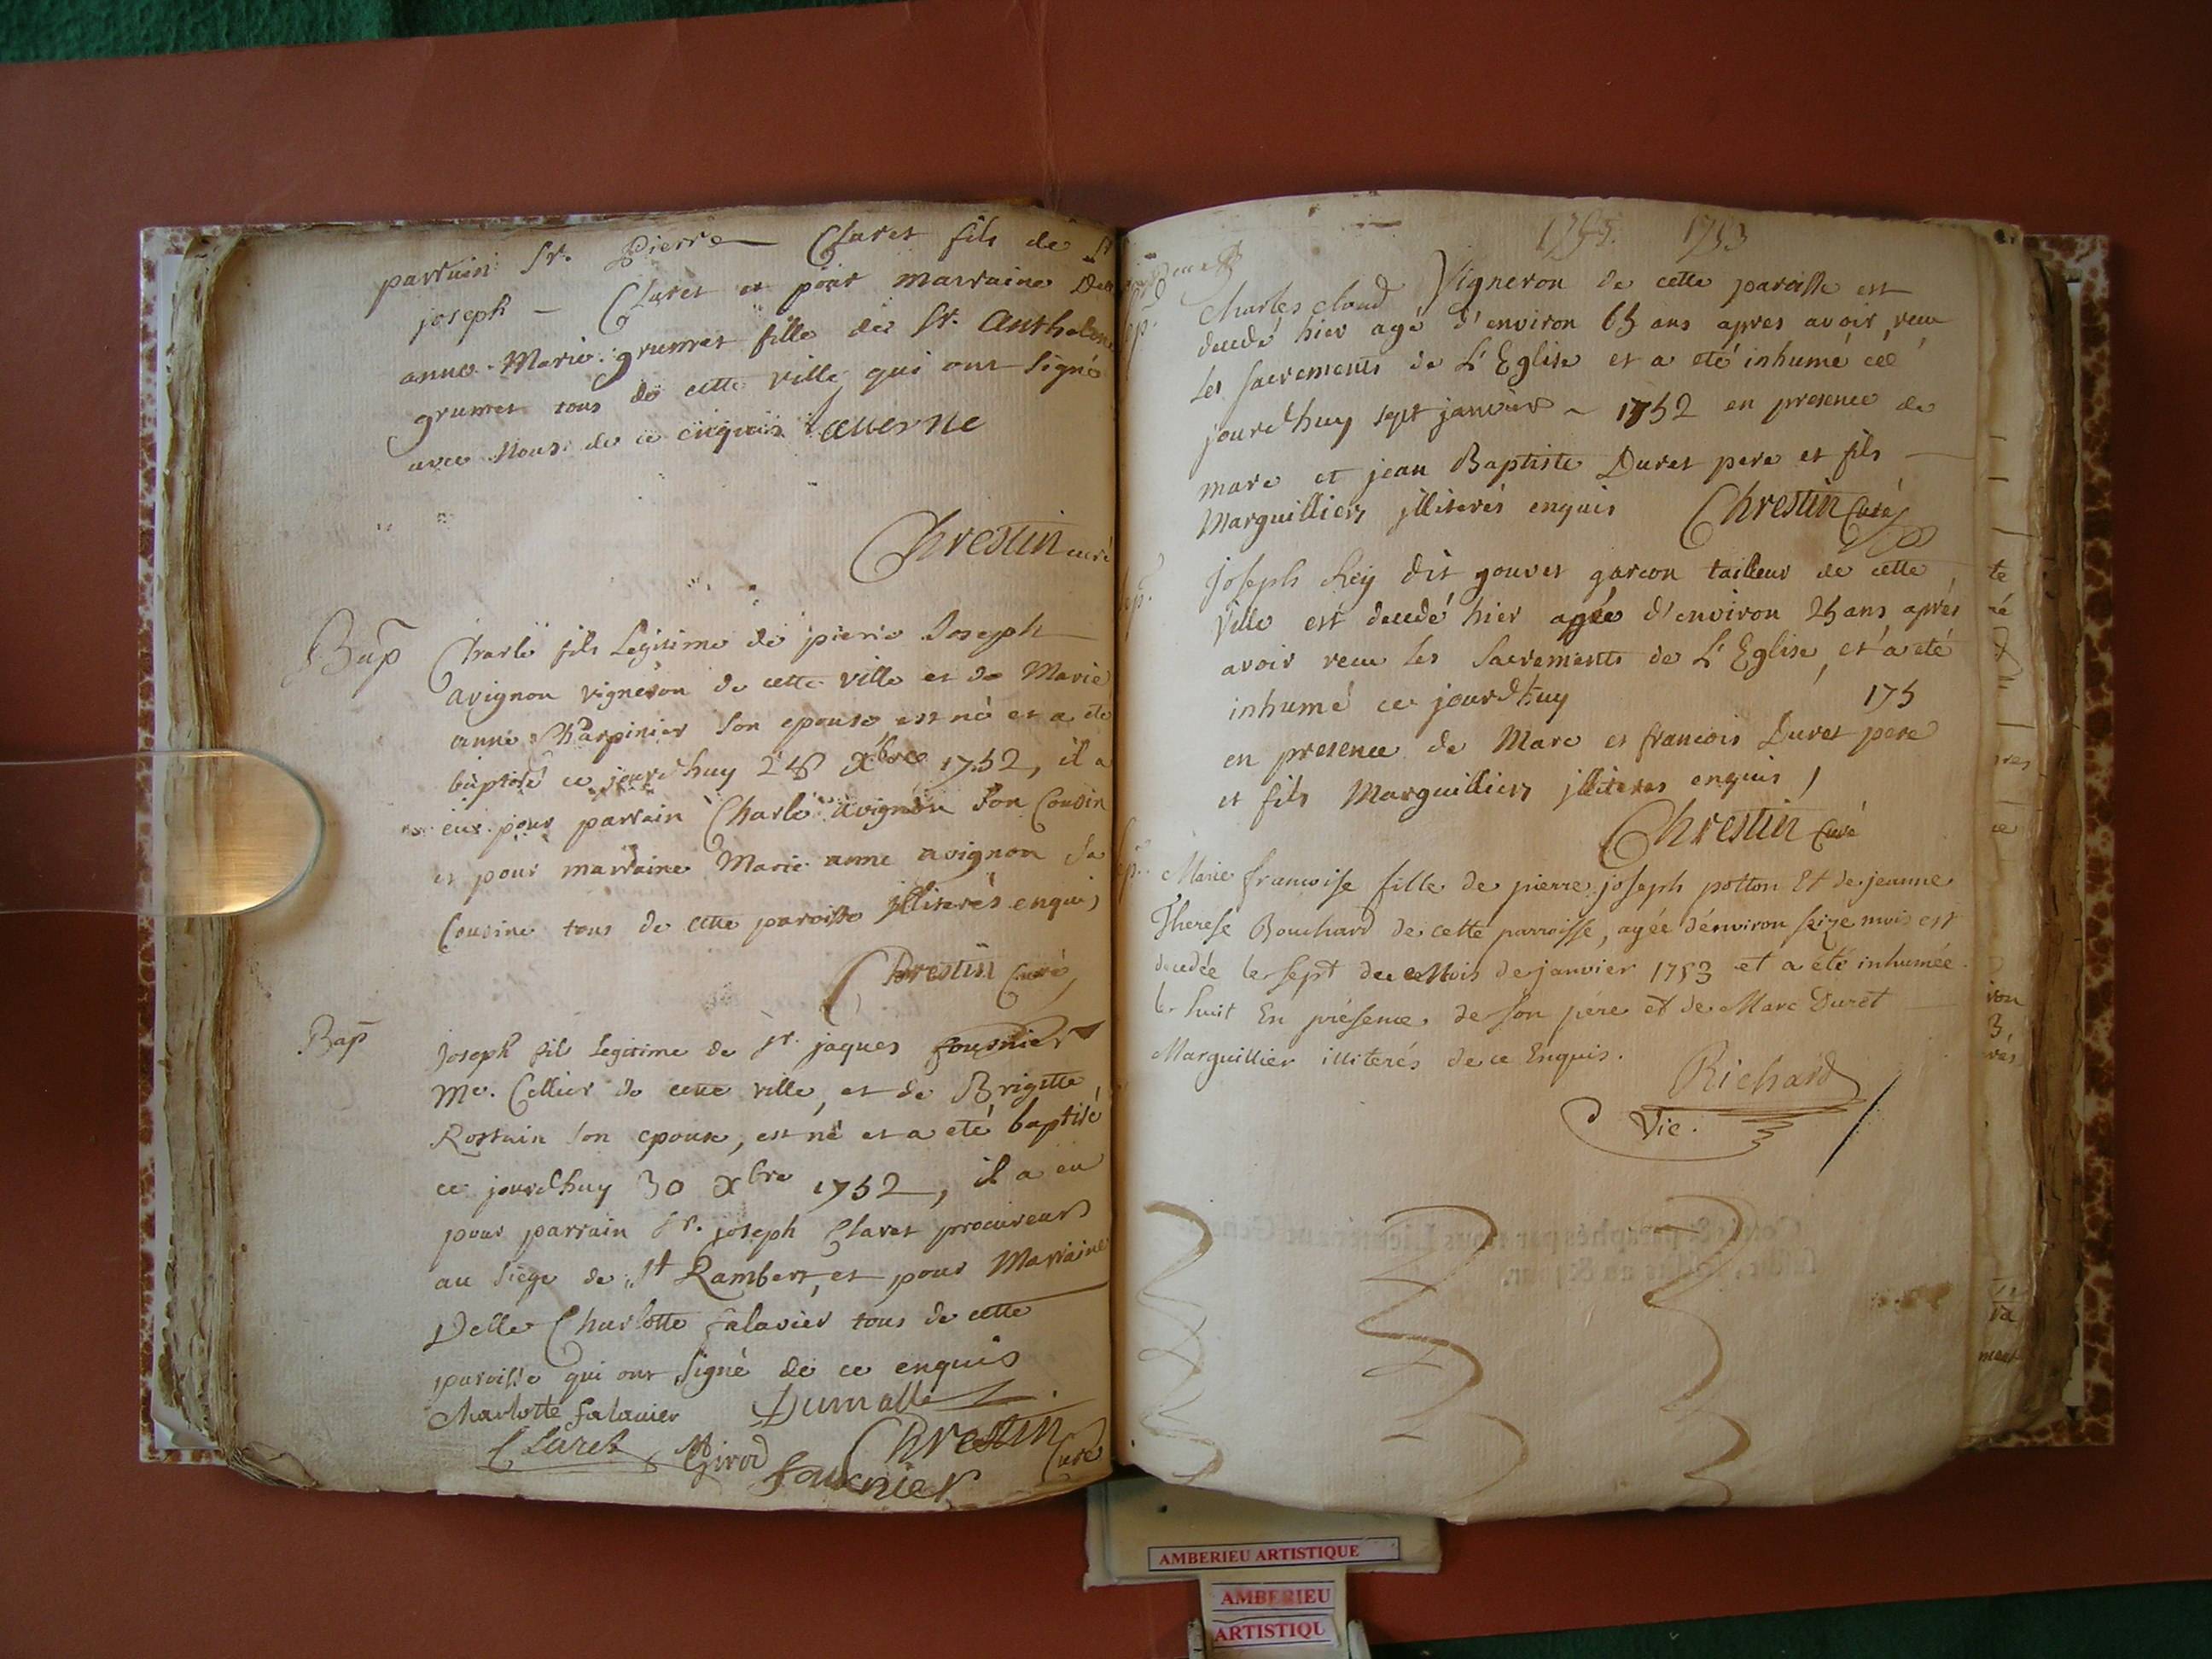 parrain Sr. Pierre Claret fils de Sr
joseph - Claret et pour marraine Delle
anne Marie grumet fille de Sr. Anthelme
grumet tous de cette ville qui ont signé
avec Nous de ce enquis taverne
Chrestin curé
Bap
Charle fils Legitime de pierre Joseph
avignon vigneron de cette ville et de Marie
anne Charpinier son epouse est né et a eté
baptisé ce jourd'huy 28 xbre 1752, il a
eu pour parrain Charle avignon son Cousin
et pour marraine Marie anne avignon sa
Cousine tous de cette paroisse jlliterés enquis
Chrestin Curé
Bap
Joseph fils Legitime de Sr. jaques fournier
Me. Cellier de cette ville, et de Brigitte
Rostain son epouse, est né et a eté baptisé
ce jourd'huy 30 xbre 1752, il a eu
pour parrain Sr. joseph Claret procureur
au siege de St Rambert, et pour Marraine
Delle Charlotte falavier tous de cette
paroisse qui ont signé de ce enquis
Charlotte falavier Dumolle
Claret Girod Chrestin Curé
fournier
1753
Charles cloud Vigneron de cette paroisse est
decedé hier agé d'environ 65 ans apres avoir receu
les sacrements de L'Eglise et a eté inhumé ce
jourd'huy sept janvier ~ 1752 en presence de
marc et jean Baptiste Duret pere et fils
Marguilliers jlliterés enquis Chrestin Curé
Sep.
Joseph Rey dit gouvet garcon tailleur de cette
Ville est decedé hier agée d'environ 25 ans, aprés
avoir receu les Sacrements de L'Eglise, et a eté
inhumé ce jourd'huy 175
en presence de Marc et francois Duret pere
et fils Marguilliers jlliteres enquis,
Chrestin Curé
Marie francoise fille de pierre joseph potton Et de jeanne
Therese Bouchard de cette parroisse, agée d'environ seize mois est
decedée le sept de ce Mois de janvier 1753 et a été inhumée
le huit En présence de son pére et de Marc Duret
Marguillier illiterés de ce Enquis.
Richard
Vic.
AMBERIEU ARTISTIQUE
AMBERIEU
ARTISTIQU